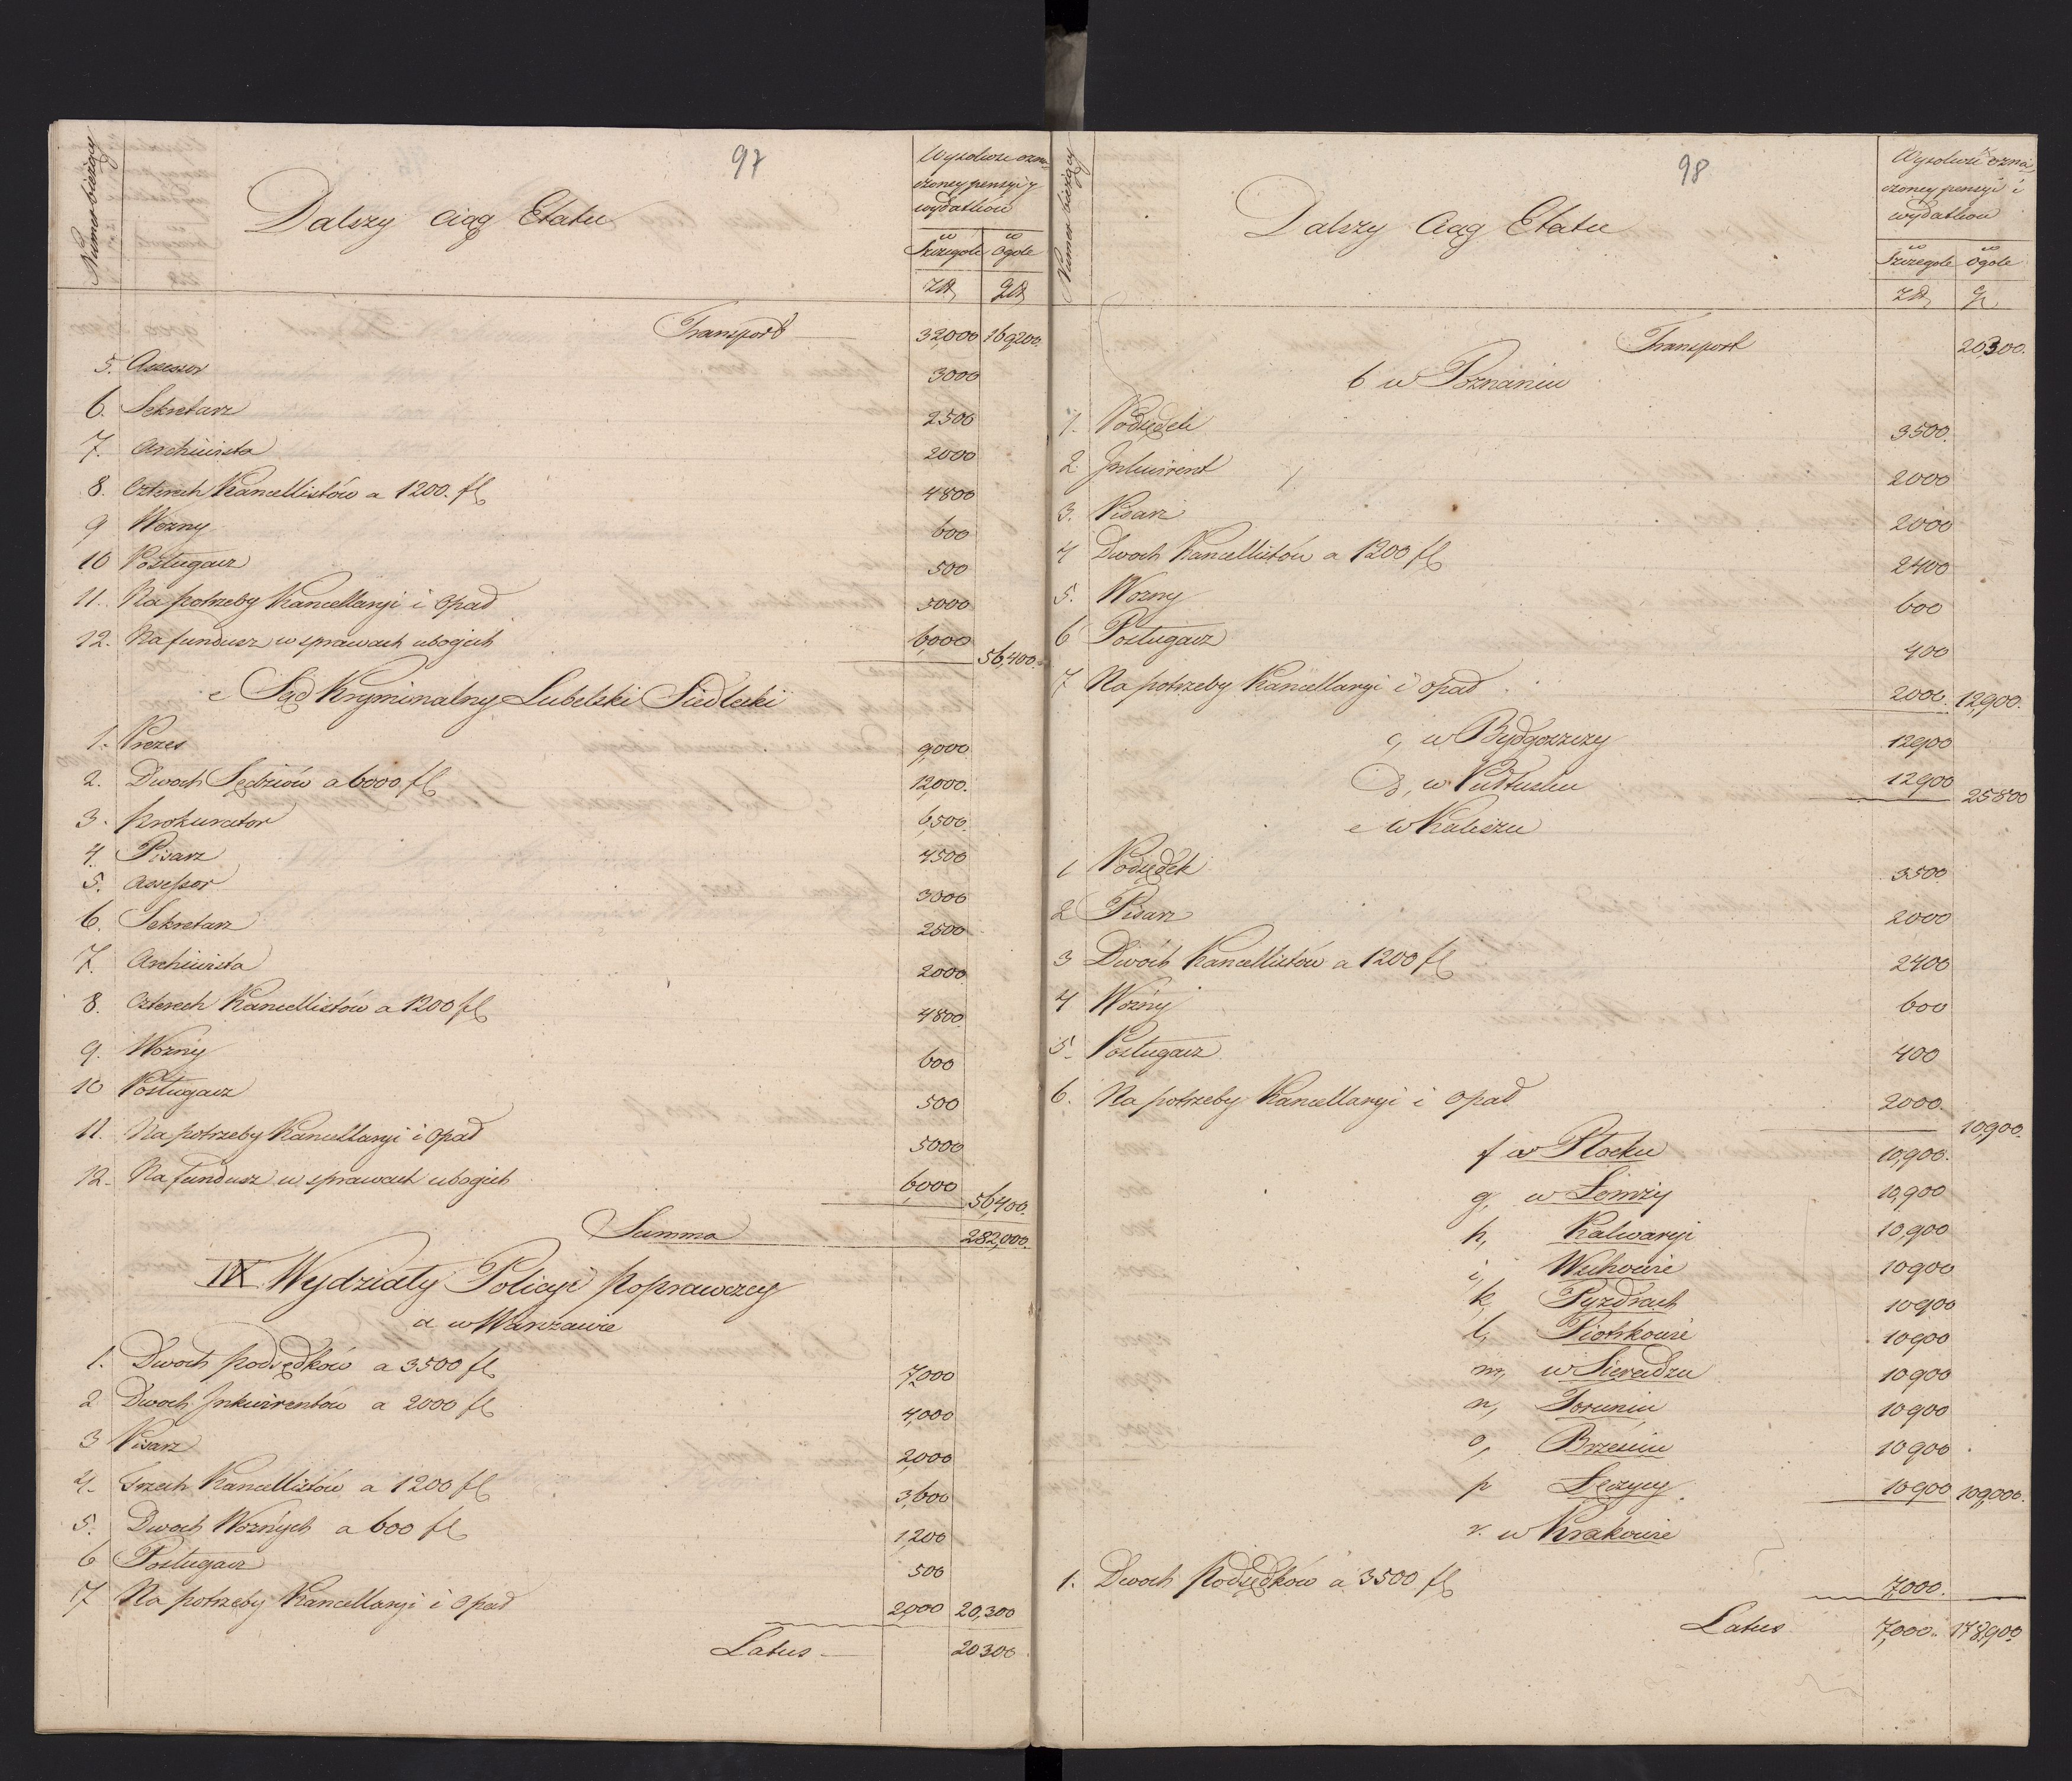 Numer bieżący
97
Dalszy Ciąg Etatu
Wysokość ozna-
czoney pensyi y
wydatków
w Szczegole
w Ogole
Złt
Złt
Transport 32,000 169200.
5. Assessor 3000
6. Sekretarz 2500
7. Archiwista 2000
8. Czterech Kancellistów a 1200. fl 4800
9 Wozny 600
10 Posługacz 500
11. Na potrzeby Kancellaryi i opad 5000
12. Na fundusz w sprawach ubogich 6,000 56,400.
e Sąd Kryminalny Lubelski Siedlecki
1. Prezes 9,000
2. Dwoch Sędziów a 6000 fl 12,000.
3. Prokurator 6,500.
4. Pisarz 4500
5. Assessor 3000
6. Sekretarz 2500
7. Archiwista 2000
8. Czterech Kancellistów a 1200 fl 4800.
9. Wozny 600
10 Posługacz 500
11. Na potrzeby Kancellaryi i opad 5000
12. Na fundusz w sprawach ubogich 6,000 56,400.
Summa 282,000.
IX. Wydziały Policyi Poprawczey
a w Warszawie
1. Dwoch podsędków a 3500 fl 7,000
2 Dwoch Inkwirentów a 2000 fl 4,000
3 Pisarz 2,000
4. Trzech Kancellistów a 1200 fl 3,600
5. Dwoch Woźnych a 600 fl 1,200
6 Posługacz 500
7 Na potrzeby Kancellaryi i opad 2,000 20,300
Latus 20300
Numer bieżący
98
Dalszy Ciąg Etatu
Wysokość ozna-
czoney pensyi i
wydatkow
w Szczegole
w Ogole
Złt
Transport 20,300.
b w Poznaniu
1. Podsędek 3500.
2. Inkwirent 2000
3. Pisarz 2000
4 Dwoch Kancellistów a 1200 fl 2400
5. Wozny 600
6 Posługacz 400
7 Na potrzeby Kancellaryi i opad 2000. 12,900.
c, w Bydgoszczy 12900
d, w Pułtusku 12900 25800
e w Kaliszu
1 Podsędek 3500
2 Pisarz 2000
3 Dwóch Kancellistów a 1200 fl 2400
4 Woźny 600
5. Posługacz 400
6. Na potrzeby Kancellaryi i opad 2000. 10,900.
f w Płocku 10,900.
g, w Łomży 10,900
h, Kalwaryi 10,900
i, Wschowie 10900
k, Pyzdrach 10900
l, Piotrkowie 10900
m, w Sieradzu 10900
n, Toruniu 10900
o, Brześciu 10900
p Łęczycy 10900 109,000.
r. w Krakowie
1. Dwoch Podsędków a 3500 fl 7000.
Latus 7,000. 178,900.